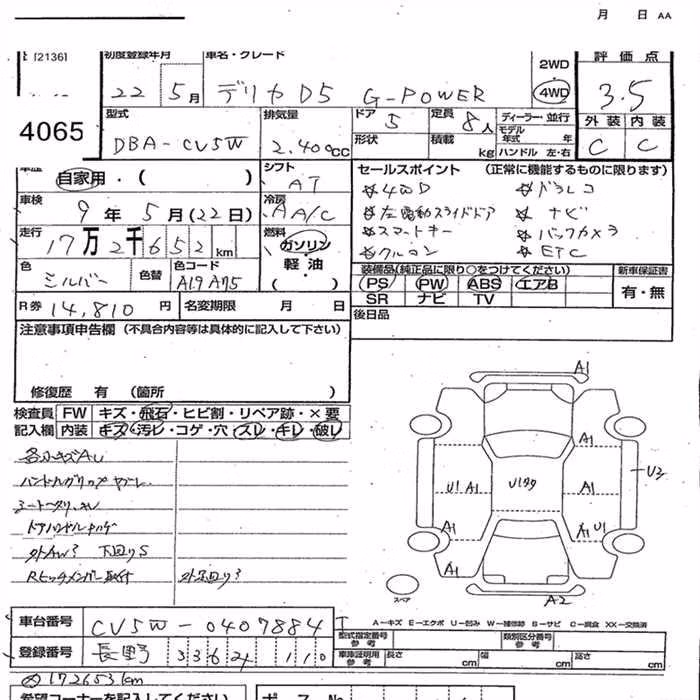 月 日 AA
[2136]
初度登録年月 車名・グレード
22 5月 デリカD5 G-POWER
2WD
4WD
評価点
3.5
外装 内装
C C
4065
型式
DBA-CV5W
排気量
2.400cc
ドア
5
形状
定員
8人
積載 kg
ディーラー・並行
モデル年式 年
ハンドル 左・右
車歴
自家用・( )
シフト
AT
車検
9年 5月(22日)
冷房
AA/C
走行
17万2千652km
燃料
ガソリン
軽油
( )
色
シルバー
色替
色コード
A19 A75
R券 14,810円
名変期限 月 日
セールスポイント (正常に機能するものに限ります)
4WD ドラレコ
左電動スライドドア ナビ
スマートキー バックカメラ
クルコン ETC
装備品(純正品に限り○をつけてください)
PS PW ABS エアB
SR ナビ TV
新車保証書
有・無
後日品
注意事項申告欄 (不具合内容等は具体的に記入して下さい)
修復歴 有 (箇所 )
検査員記入欄
FW キズ・飛石・ヒビ割・リペア跡・×要
内装 キズ・汚レ・コゲ・穴・スレ・キレ・破レ
各小キズAU
ハンドルグリップ
シート
ドアハンドル
下回りS
Rヒッチメンバー
A1
A1 A1
U1 A1 U199 A1 U3
A1 A1 U1
A1
A2
スペア
A-キズ E-エクボ U-凹み W-補修跡 B-サビ C-腐食 XX-交換済
車台番号 CV5W-0407884
登録番号 長野 336 110
型式指定番号 参考
類別区分番号 参考
車庫証明用 参考
長さ cm 幅 cm 高さ cm
172653km
希望コーナーを記入してください